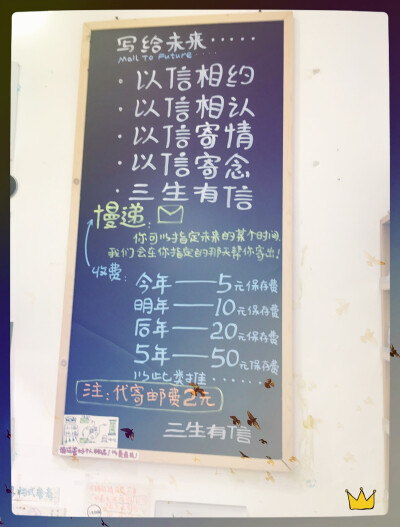 写给未来·····
Mail To Future....
·以信相约
·以信相认
·以信寄情
·以信寄念
·三生有信
慢递:
你可以指定未来的某个时间,
我们会在你指定的那天帮你寄出!
收费:
今年——5元保存费
明年——10元保存费
后年——20元保存费
5年——50元保存费
以此类推·······
注:代寄邮费2元
三生有信